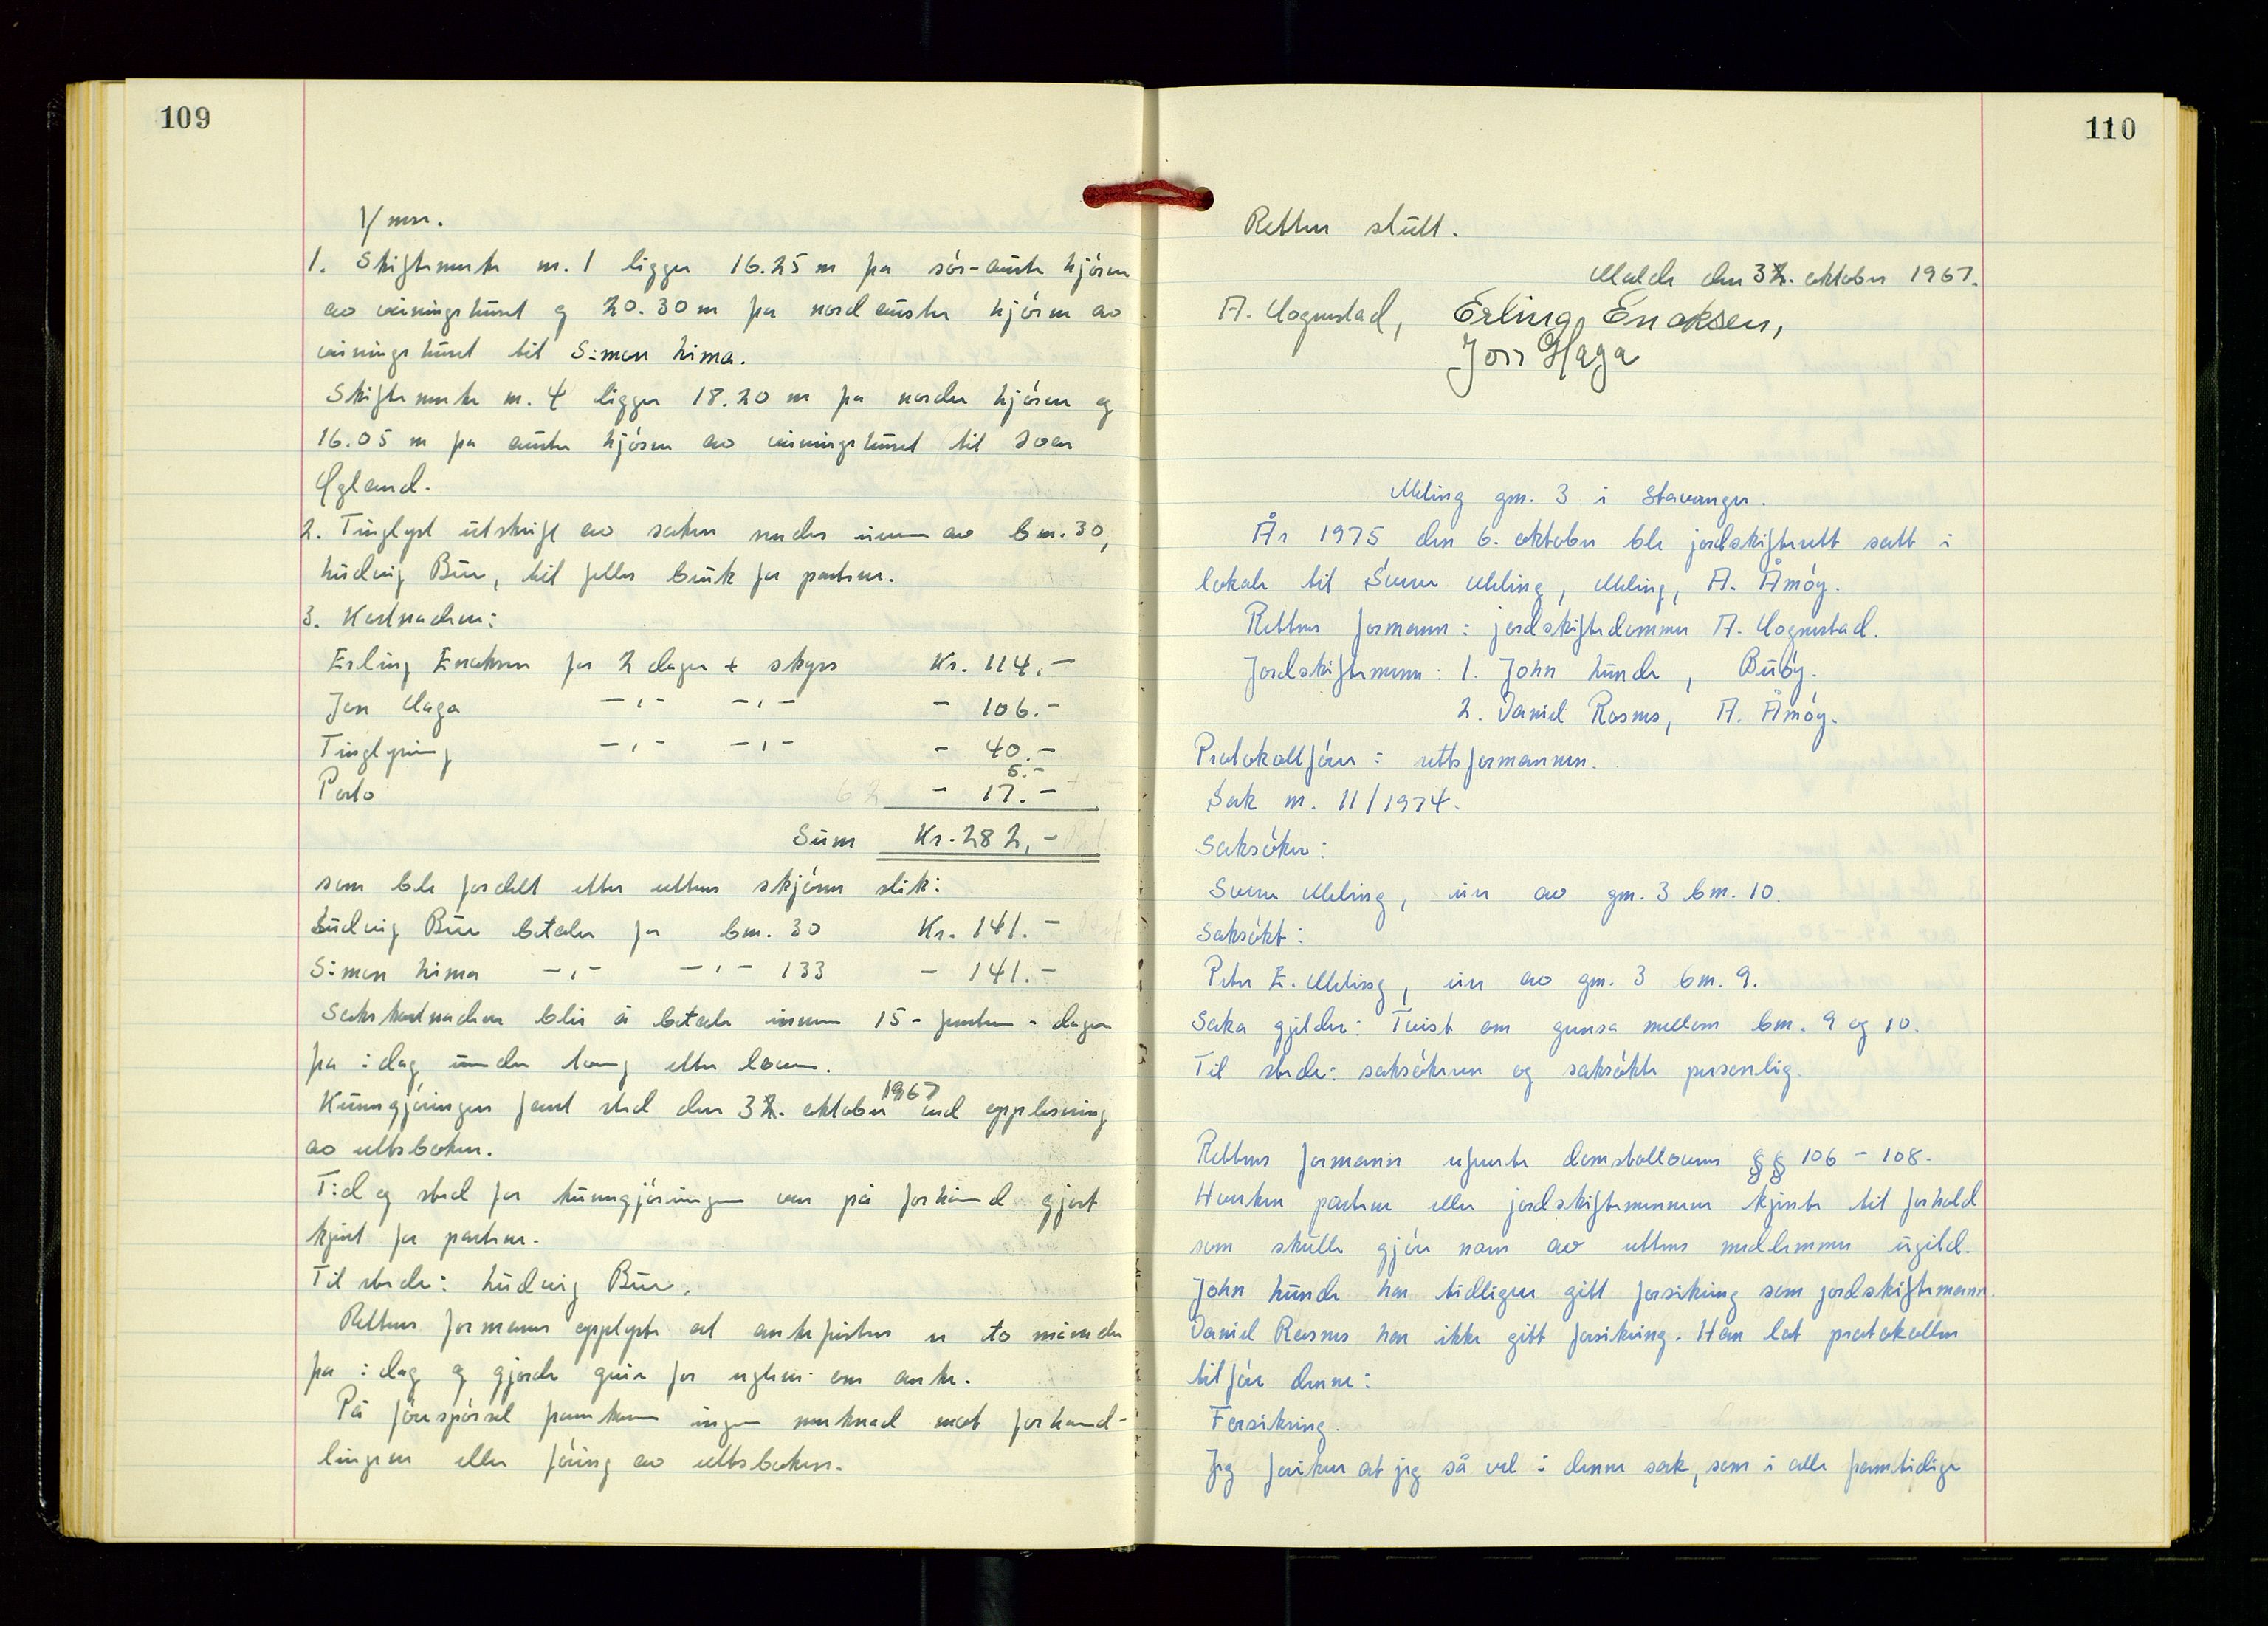 109
1/ mer.
1. Skiftemerke nr. 1 ligger 16.25 m fra sør-austre hjørne
av våningshuset og 20.30 m fra nordaustre hjørne av
våningshuset til Simon Lima.
Skiftemerke nr. 4 ligger 18.20 m fra nordre hjørne og
16.05 m fra austre hjørne av våningshuset til Sven
Øgland.
2. Tinglyst utskrift av saken sendes eieren av bnr. 30,
Ludvig Bue, til felles bruk for partene.
3. Kostnadene:
Erling Enoksen for 2 dager + skyss Kr. 114.-
Jon Haga -,- -,- - 106.-
Tinglysing -,- -,- - 40.-
5.-
Porto - 17.-
Sum Kr. 282,-
som ble fordelt etter rettens skjønn slik:
Ludvig Bue betaler for bnr. 30 Kr. 141.-
Simon Lima -,- -,- 133 - 141.-
Sakskostnadene blir å betale innen 15 - femten - dager
fra idag under tvang etter loven.
Kunngjøringen fant sted den 31. oktober 1967 ved opplesning
av rettsboken.
Tid og sted for kunngjøringen var på forhånd gjort
kjent for partene.
Til stede: Ludvig Bue.
Rettens formann opplyste at ankefristen er to måneder
fra idag og gjorde greie for reglene om anke.
På forespørsel framkom ingen merknad mot forhand-
lingene eller føring av rettsboken.
110
Retten slutt.
Madla den 31. oktober 1967.
A. Vognestad, Erling Enoksen,
Jon Haga
Meling gnr. 3 i Stavanger.
År 1975 den 6. oktober ble jordskifterett satt i
lokale til Sverre Meling, Meling, A. Åmøy.
Rettens formann: jordskiftedommer A. Vognestad.
Jordskiftemenn: 1. John Lunde, Buøy.
2. Daniel Rosnes, A. Åmøy.
Protokollfører: rettsformannen.
Sak nr. 11/1974.
Saksøker:
Sverre Meling, eier av gnr. 3 bnr. 10.
Saksøkt:
Peter E. Meling, eier av gnr. 3 bnr. 9.
Saka gjelder: Tvist om grensa mellom bnr. 9 og 10.
Til stede: saksøkeren og saksøkte personlig.
Rettens formann refererte domstollovens §§ 106 - 108.
Hverken partene eller jordskiftemennene kjente til forhold
som skulle gjøre noen av rettens medlemmer ugild.
John Lunde har tidligere gitt forsikring som jordskiftemann.
Daniel Rosnes har ikke gitt forsikring. Han lot protokollen
tilføre denne:
Forsikring.
Jeg forsikrer at jeg så vel i denne sak, som i alle framtidige